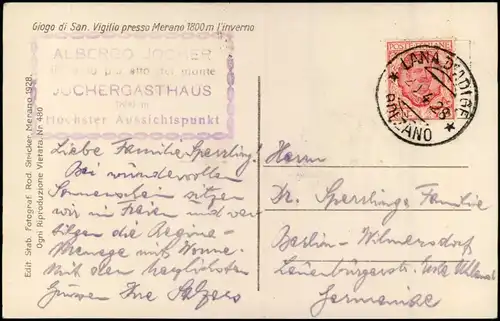 Giogo di San. Vigilio presso Merano 1800 m l'inverno
ALBERGO JOCHER
più alto del monte
JOCHERGASTHAUS
Höchster Aussichtspunkt
Edit. Stab. Fotograf. Rod. Stricker, Merano 1928.
Ogni Riproduzione Vietata. Nr. 480
POSTE ITALIANE
* LANA D'ADIGE *
4 28
BOLZANO
Liebe Familie Sperling!
Bei wundervollem
Sonnenschein sitzen
wir im Freien und ver
tilgen die Regina-
Menage mit Wonne.
Mit den herzlichsten
Grüssen Ihre
Herrn
Dr. Sperlings Familie
Berlin - Wilmersdorf
Ecke
Germania